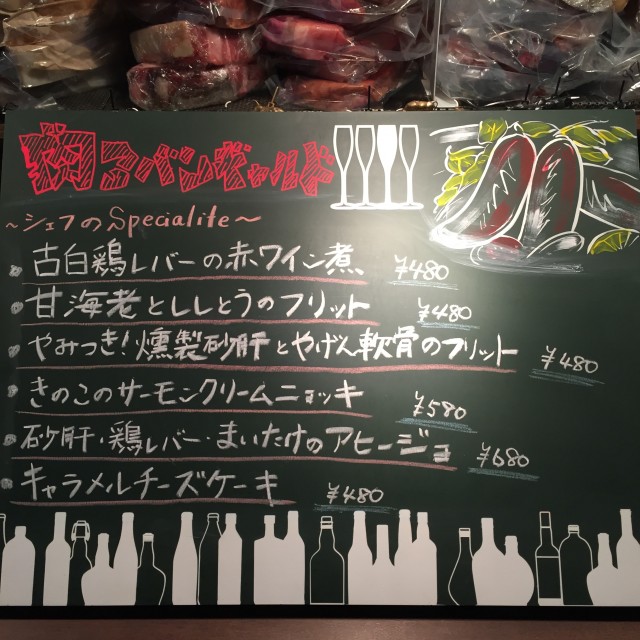 アバンギャルド
~シェフのSpecialite~
古白鶏レバーの赤ワイン煮 ¥480
甘海老とししとうのフリット ¥480
やみつき!燻製砂肝とやげん軟骨のフリット ¥480
きのこのサーモンクリームニョッキ ¥580
砂肝・鶏レバー・まいたけのアヒージョ ¥680
キャラメルチーズケーキ ¥480